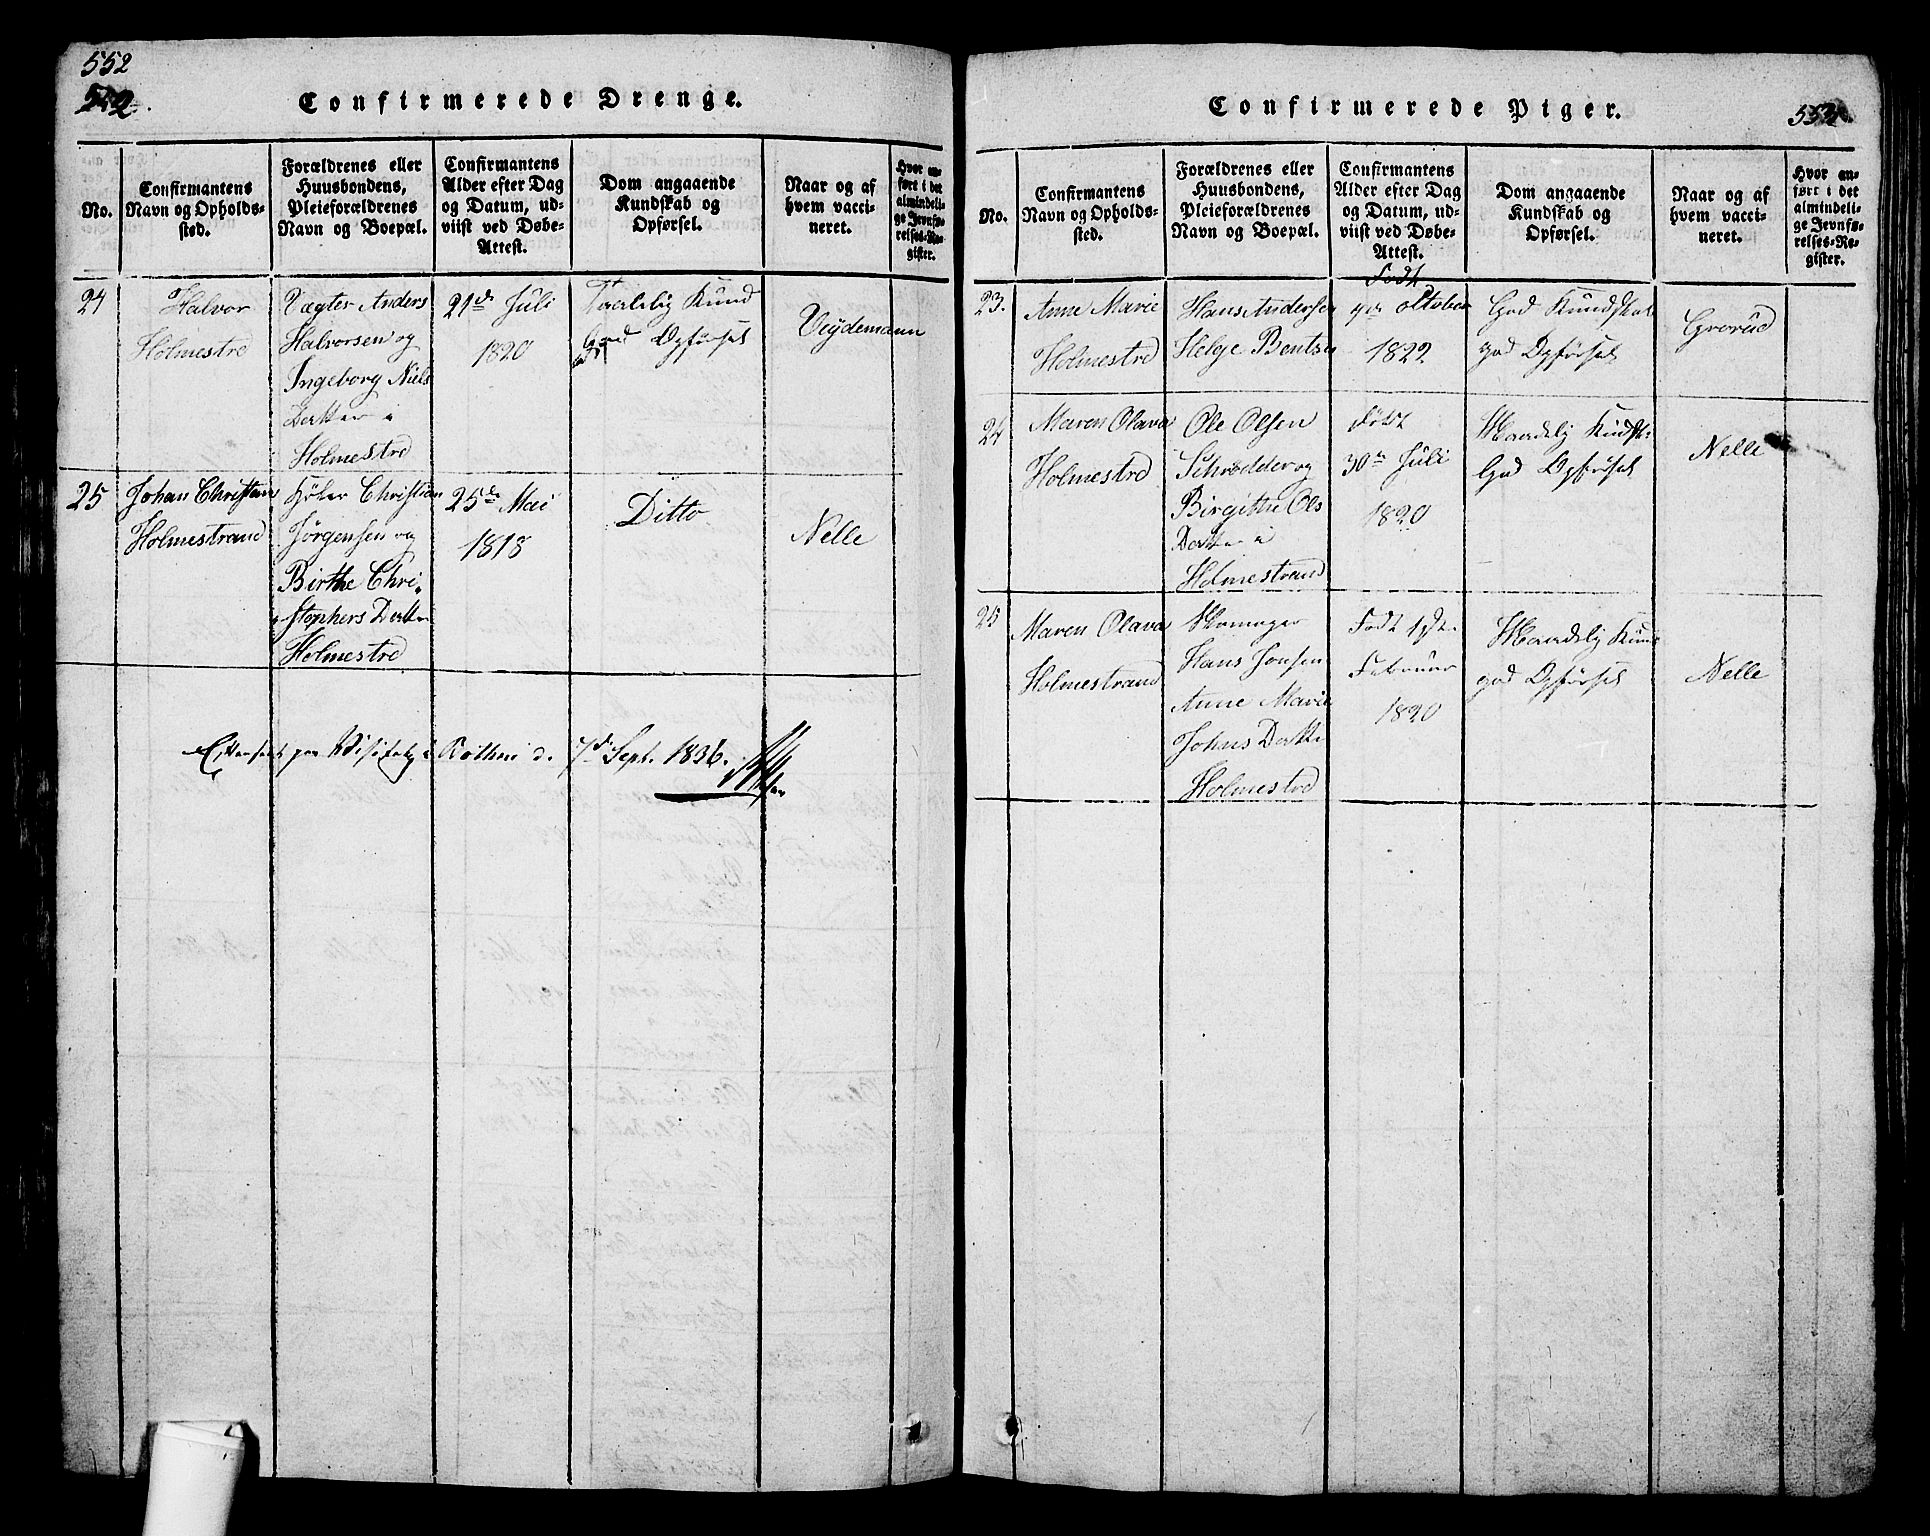 552
Confirmerede Drenge.
No.
Confirmantens
Navn og Opholds-
sted.
Forældrenes eller
Huusbondens,
Pleieforældrenes
Navn og Boepæl.
Confirmantens
Alder efter Dag
og Datum, ud-
viist ved Døbe-
Attest.
Dom angaaende
Kundskab og
Opførsel.
Naar og af
hvem vacci-
neret.
Hvor an-
ført i det
almindeli-
ge Jevnfø-
relses-Re-
gister.
24
Halvor
Holmestrd
Vægter Anders
Halvorsen og
Ingeborg Niels
Datter i
Holmestrd
21de Juli
1820
Taalelig Kund
God Opførsel
Veydemann
25
Johan Christian
Holmestrand
Christian
Jørgensen og
Birthe Chri-
stophers Datter
Holmestrd
25de Mai
1818
Ditto
Nelle
Efterseet paa Visitatz i Bothne d. 7de Sept. 1836.
Confirmerede Piger.
553
No.
Confirmantens
Navn og Opholds-
sted.
Forældrenes eller
Huusbondens,
Pleieforældrenes
Navn og Boepæl.
Confirmantens
Alder efter Dag
og Datum, ud-
viist ved Døbe-
Attest.
Dom angaaende
Kundskab og
Opførsel.
Naar og af
hvem vacci-
neret.
Hvor an-
ført i det
almindeli-
ge Jevnfø-
relses-Re-
gister.
23.
Anne Marie
Holmestrd
Hans Andersen
Helge Bentsen
Født
9de Oktober
1822
God Kundskab
god Opførsel
Grorud
24
Maren Olava
Holmestrd
Ole Olsen
Schrødder og
Birgithe Ols
Datter i
Holmestrand
Født
30te Juli
1820
Maadelig Kundsk.
God Opførsel
Nelle
25
Maren Olava
Holmestrand
Hans Jonsen
Anne Marie
Johns Datter
Holmestrd
Født 1ste
Februar
1820
Maadelig Kund
god Opførsel
Nelle